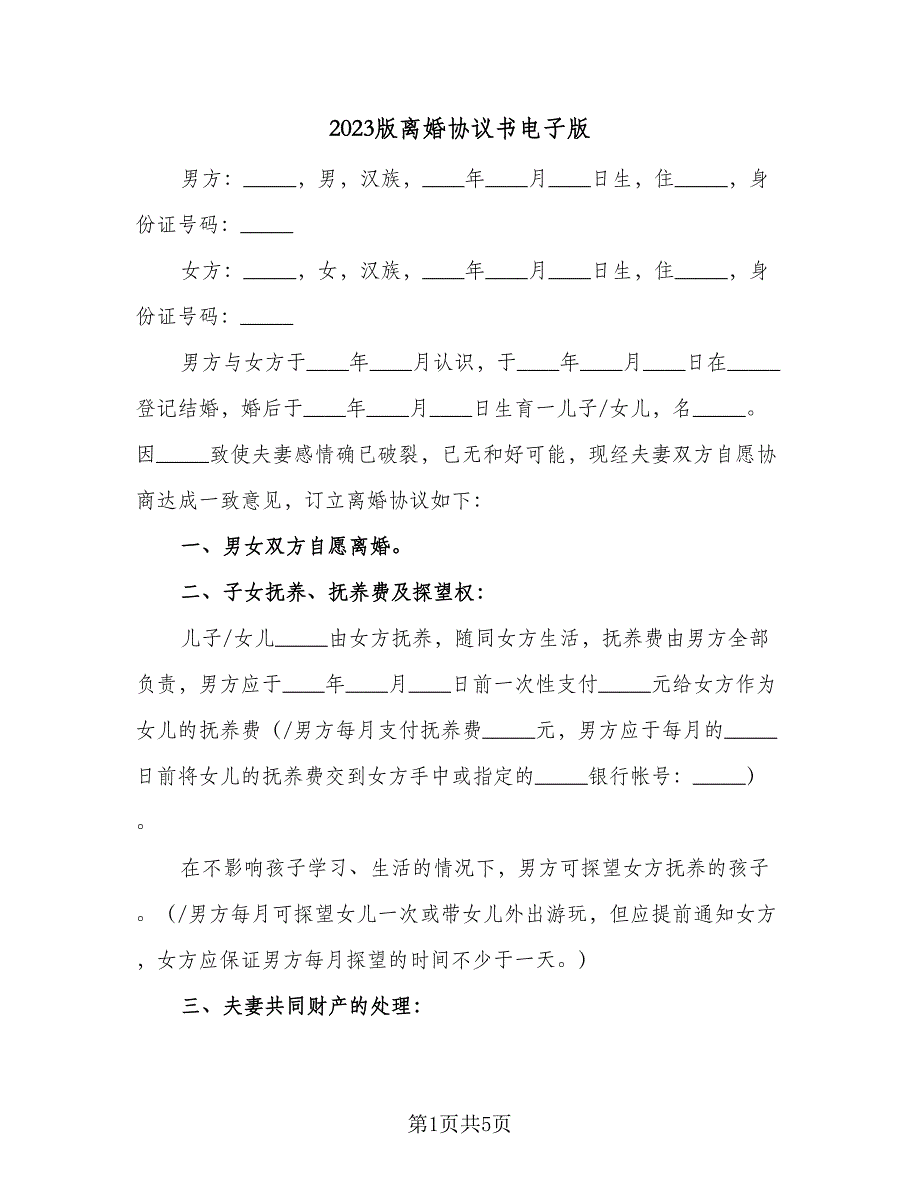 2023版离婚协议书电子版
男方：_____，男，汉族，____年____月____日生，住_____，身
份证号码：_____
女方：_____，女，汉族，____年____月____日生，住_____，身
份证号码：_____
男方与女方于____年____月认识，于____年____月____日在_____
登记结婚，婚后于____年____月____日生育一儿子/女儿，名_____。
因_____致使夫妻感情确已破裂，已无和好可能，现经夫妻双方自愿协
商达成一致意见，订立离婚协议如下：
一、男女双方自愿离婚。
二、子女抚养、抚养费及探望权：
儿子/女儿_____由女方抚养，随同女方生活，抚养费由男方全部
负责，男方应于____年____月____日前一次性支付_____元给女方作为
女儿的抚养费（/男方每月支付抚养费_____元，男方应于每月的_____
日前将女儿的抚养费交到女方手中或指定的_____银行帐号：_____）
。
在不影响孩子学习、生活的情况下，男方可探望女方抚养的孩子
。（/男方每月可探望女儿一次或带女儿外出游玩，但应提前通知女方
，女方应保证男方每月探望的时间不少于一天。）
三、夫妻共同财产的处理：
第1页共5页